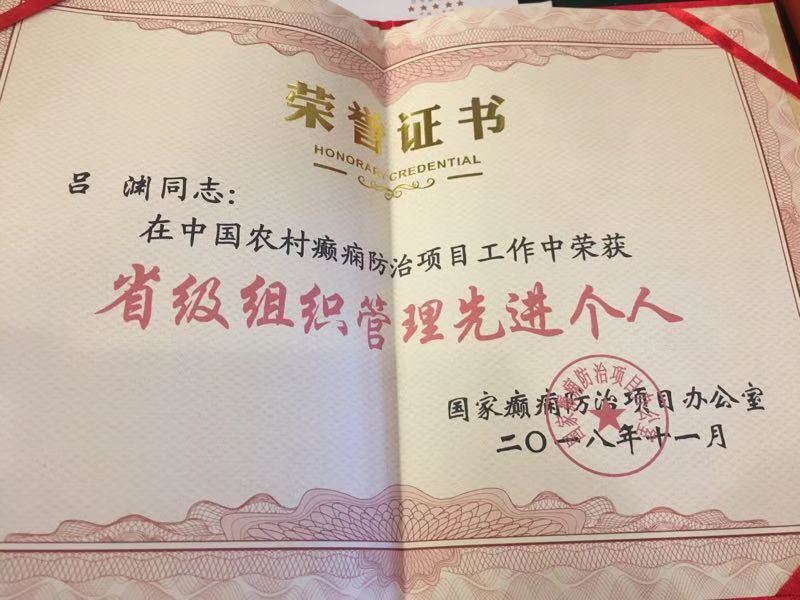 荣誉证书
HONORARY CREDENTIAL
吕 渊同志：
在中国农村癫痫防治项目工作中荣获
省级组织管理先进个人
国家癫痫防治项目办公室
二〇一八年十一月
国家癫痫防治项目办公室